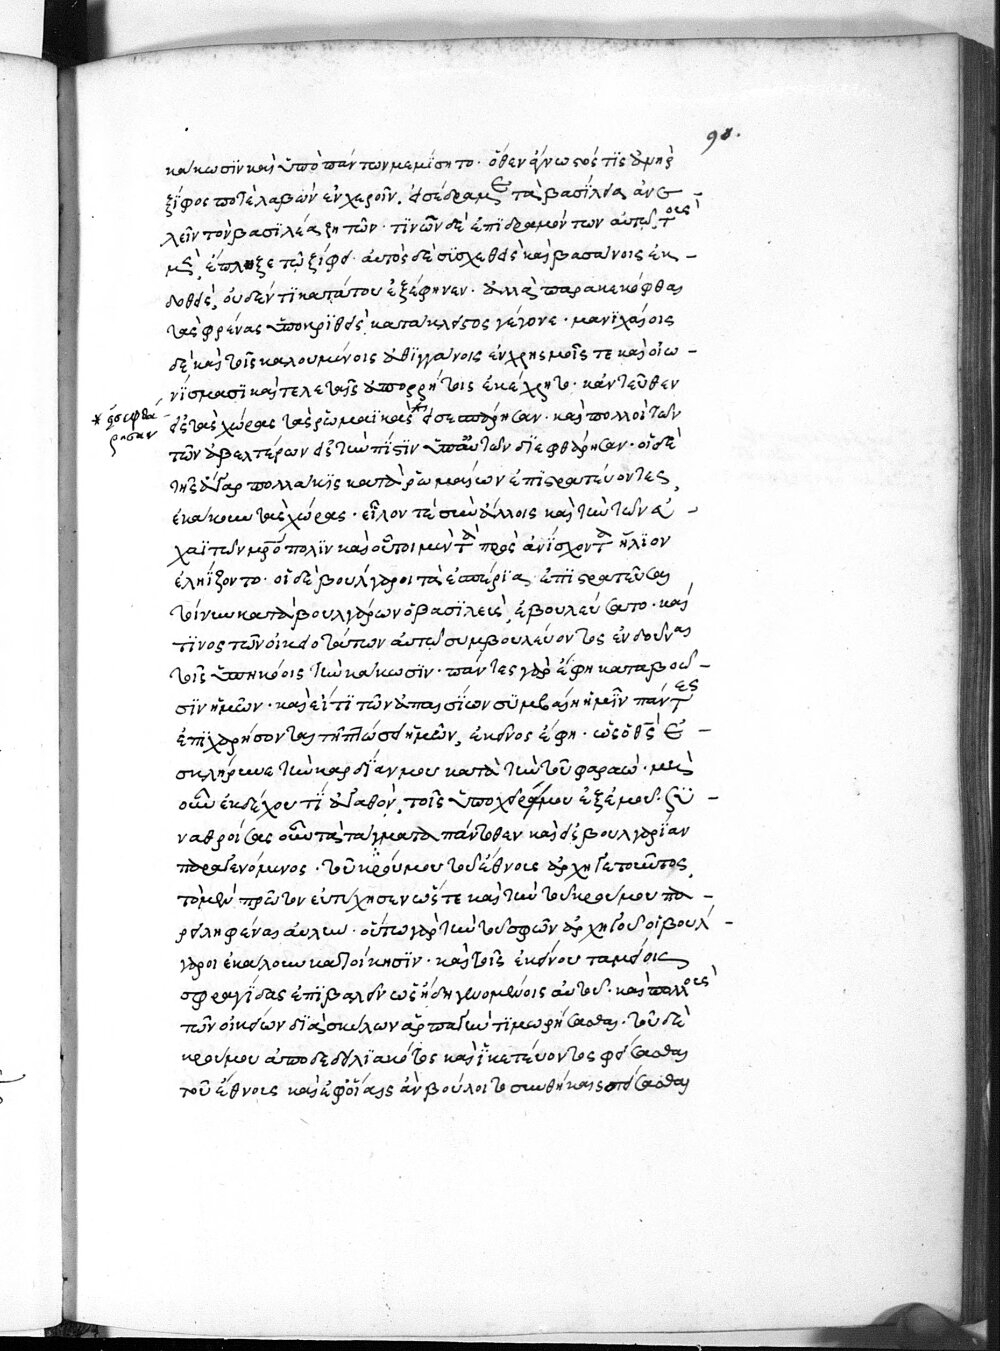 98.
κάκωσιν καὶ ὑπὸ πάντων μεμίσητο· ὅθεν ἄγνωστός τις ἀνὴρ
ξίφος ποτὲ λαβὼν ἐν χεροῖν, εἰσέδραμεν εἰς τὰ βασίλεια ἀνε-
λεῖν τὸν βασιλέα ζητῶν· τινῶν δὲ ἐπιδραμόντων αὐτῷ, τούς
μὲν ἔπληξε τῷ ξίφει· αὐτὸς δὲ συσχεθεὶς καὶ βασάνοις ἐκ-
δοθεὶς, οὐδέν τι κατά του ἐξέφηνεν· ἀλλὰ παρακεκόφθαι
τὰς φρένας ὑποκριθεὶς κατάκλειστος γέγονε· μανιχαίοις
δὲ καὶ τοῖς καλουμένοις ἀθιγγάνοις ἐν χρησμοῖς τε καὶ οἰω-
νίσμασι καὶ τελεταῖς ἀπορρήτοις ἐκέχρητο· κἀντεῦθεν
εἰς τὰς χώρας τὰς ῥωμαϊκὰς * καὶ πολλοὶ τῶν
* εἰσεφθάρησαν
τῶν ἀβελτέρων εἰς τὴν πίστιν ὑπ' αὐτῶν διεφθάρησαν· οἱ δὲ
τῆς ἄγαρ πολλάκις κατὰ ῥωμαίων ἐπιστρατεύοντες,
ἐκάκουν τὰς χώρας· εἷλον τε σὺν ἄλλοις καὶ τὴν τῶν εὐ-
χαΐτων μητρόπολιν καὶ οὗτοι μὲν τὰ πρὸς ἀνίσχοντα ἥλιον
ἐληΐζοντο· οἱ δὲ βούλγαροι τὰ ἑσπέρια· ἐπιστρατεῦσαι
τοίνυν κατὰ βουλγάρων ὁ βασιλεὺς ἐβουλεύσατο· καί
τινος τῶν οἰκειοτάτων αὐτῷ συμβουλεύοντος ἐνδοῦναι
τοῖς ὑπηκόοις τὴν κάκωσιν· πάντες γὰρ ἔφη καταβοῶ-
σιν ἡμῶν· καὶ εἴ τι τῶν ἀπαισίων συμβαίη ἡμῖν πάντες
ἐπιχαρήσονται τῇ πτώσει ἡμῶν, ἐκεῖνος ἔφη· ὡς ὁ θεὸς ἐ-
σκλήρυνε τὴν καρδίαν μου κατὰ τὴν τοῦ φαραώ· μὴ
οὖν ἐκδέχου τι ἀγαθὸν, τοῖς ὑπὸ χεῖρά μου ἐξ ἐμοῦ· συ-
ναθροίσας οὖν τὰ τάγματα πάντοθεν καὶ εἰς βουλγαρίαν
παραγενόμενος· τοῦ κρούμου τοῦ ἔθνους ἀρχηγετοῦντος,
τὸ μὲν πρῶτον εὐτύχησεν ὥστε καὶ τὴν τοῦ κρούμου πα-
ρειληφέναι αὐλὴν· οὕτω γὰρ τὴν τοῦ σφῶν ἀρχηγοῦ οἱ βούλ-
γαροι ἐκάλουν κατοίκησιν· καὶ τοῖς ἐκείνου ταμείοις
σφραγίδας ἐπιβαλεῖν ὡς ἤδη γενομένοις αὐτοῦ· καὶ πολλοὺς
τῶν οἰκείων διὰ σκύλων ἁρπαγὴν τιμωρήσασθαι· τοῦ δὲ
κρούμου ἀποδεδειλιακότος καὶ ἱκετεύοντος φείσασθαι
τοῦ ἔθνους καὶ ἐφ' οἵαις ἂν βούλοιτο συνθήκαις σπείσασθαι